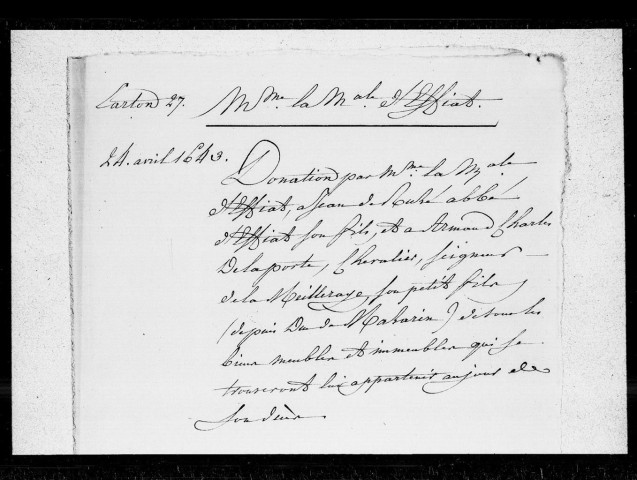 Carton 27. Mme la Male d'Effiat.
24. avril 1643. Donation par Mme la Male
d'Effiat, a Jean de Ruzé abbé
d'Effiat son fils, et a Armand Charles
Delaporte, Chevalier, seigneur
de la Meilleraye, son petit fils
(depuis Duc de Mazarin) de tous les
biens meubles et immeubles qui se
trouveront lui appartenir au jour de
son décès